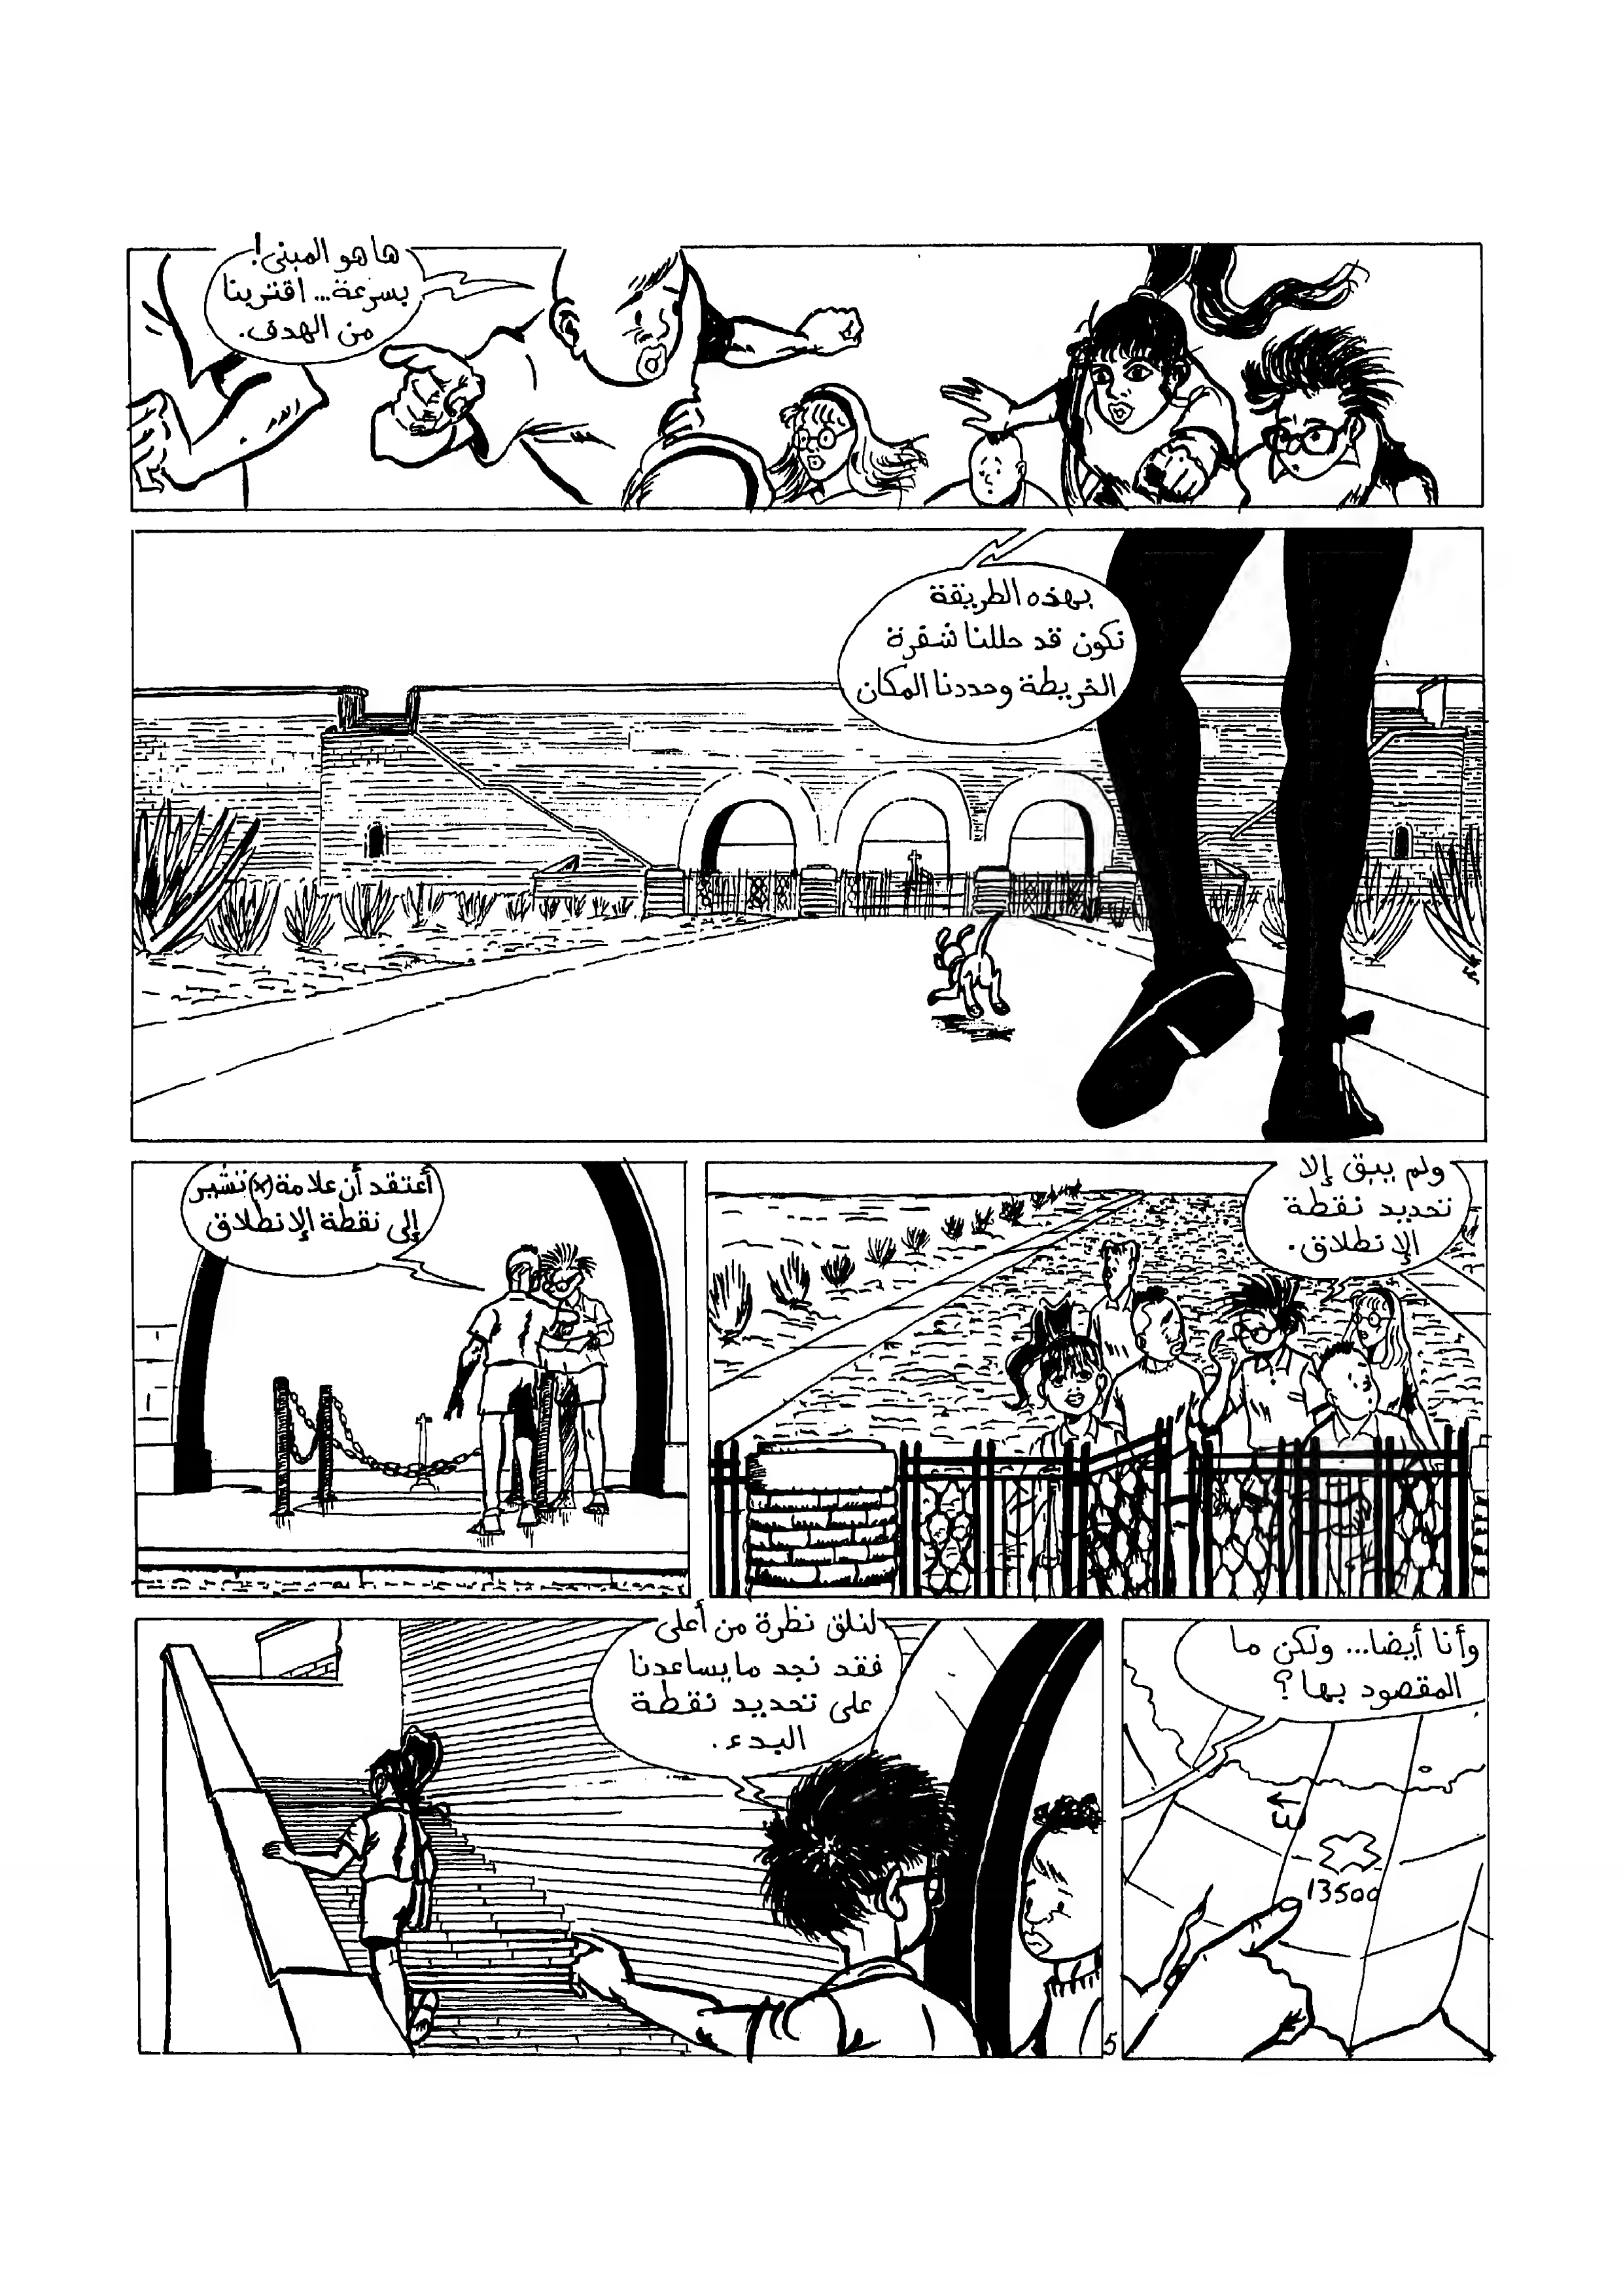 ها هو المبنى!
بسرعة... اقتربنا
من الهدف.
بهذه الطريقة
نكون قد حللنا شفرة
الخريطة وحددنا المكان
ولم يبق إلا
تحديد نقطة
الإنطلاق.
أعتقد أن علامة (x) تشير
إلى نقطة الإنطلاق
وأنا أيضا... ولكن ما
المقصود بها؟
ω
13500
لنلق نظرة من أعلى
فقد نجد ما يساعدنا
على تحديد نقطة
البدء.
5